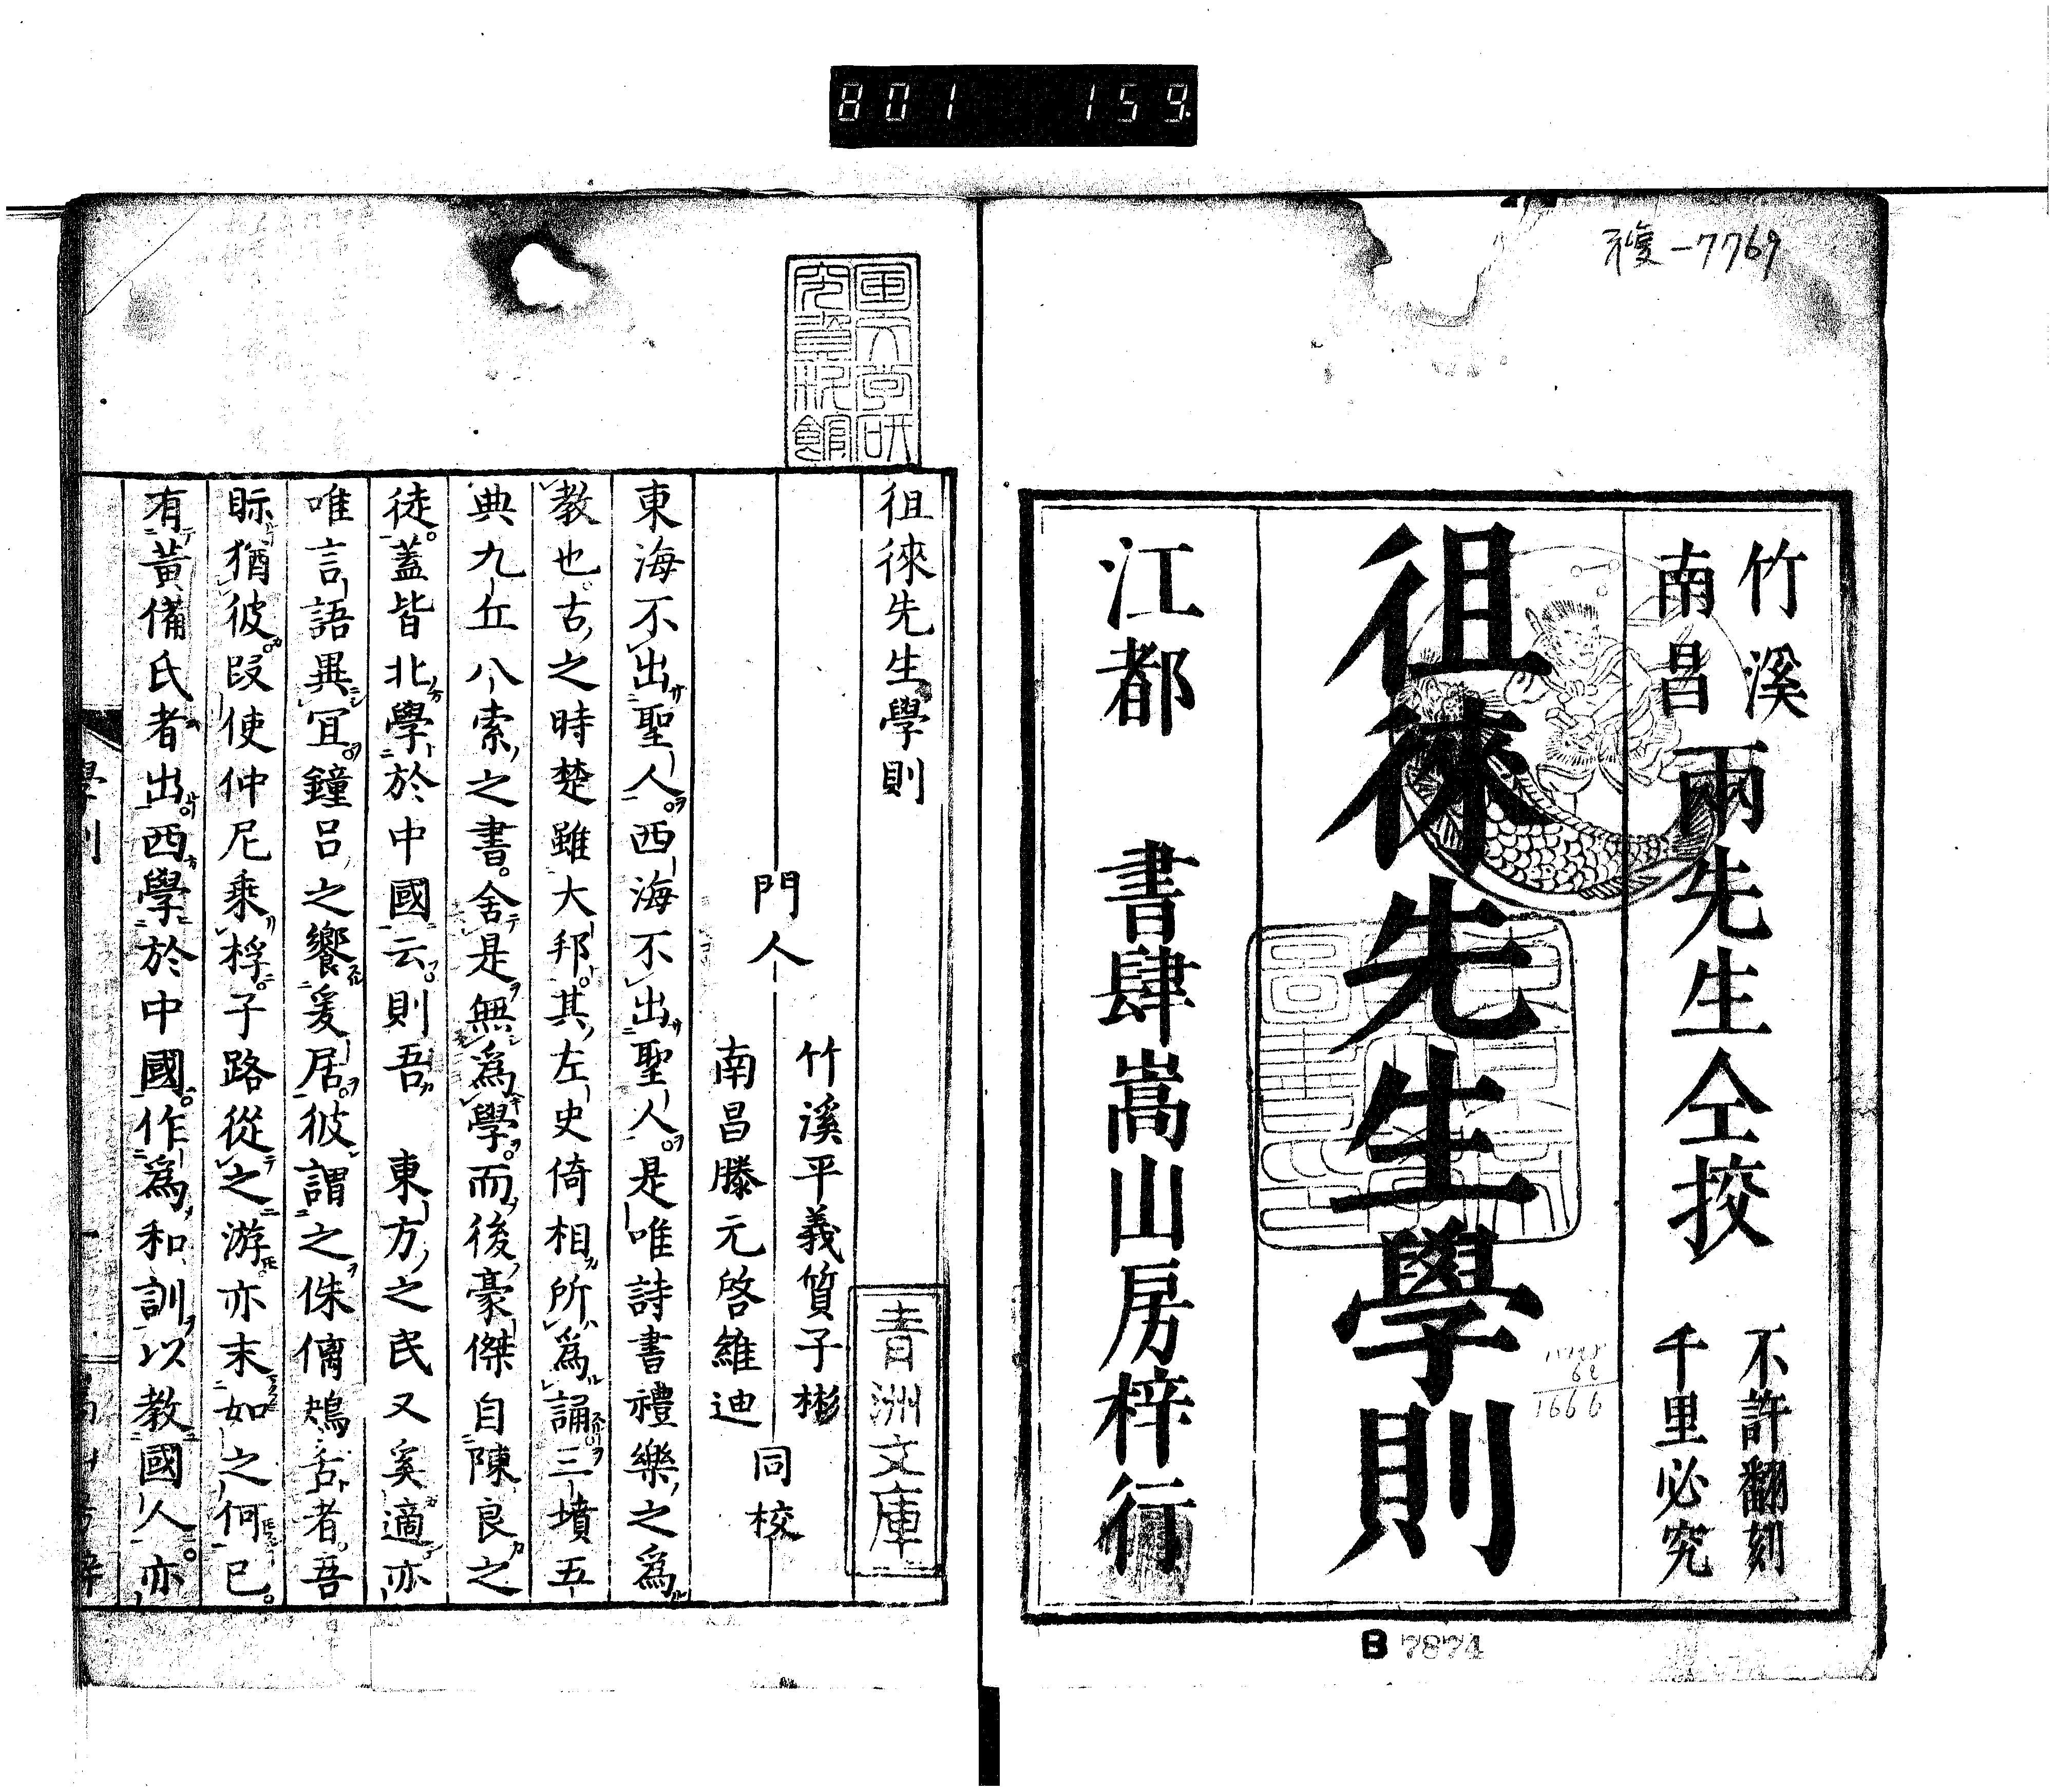 801 159
複-7769
竹溪
南昌
兩先生仝挍
不許翻刻
千里必究
徂徠先生學則
江都 書肆嵩山房梓行
B 7874
徂徠先生學則
青洲文庫
門人
竹溪平義質子彬
南昌滕元啓維迪
同校
東海不出聖人西海不出聖人是唯詩書禮樂之為
教也古之時楚雖大邦其左史倚相所為誦三墳五
典九丘八索之書舍是無為學而後豪傑自陳良之
徒蓋皆北學於中國云則吾 東方之民又奚適亦
唯言語異宜鐘呂之饗爰居彼謂之侏𠌯鴂舌者吾
眎猶彼叚使仲尼乘桴子路從之游亦末如之何已
有黃備氏者出西學於中國作為和訓以教國人亦